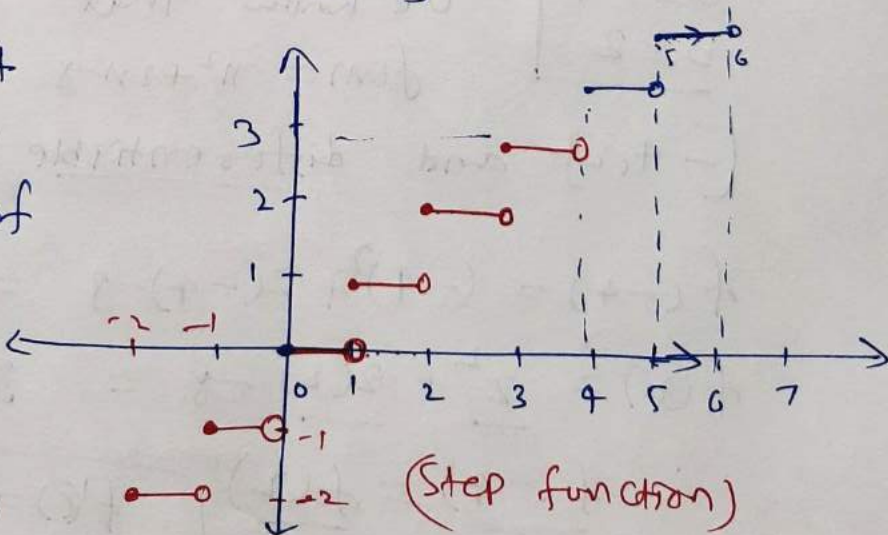 5 6
3
of
2
1
-2 -1
0 1 2 3 4 5 6 7
-1
-2 (Step function)